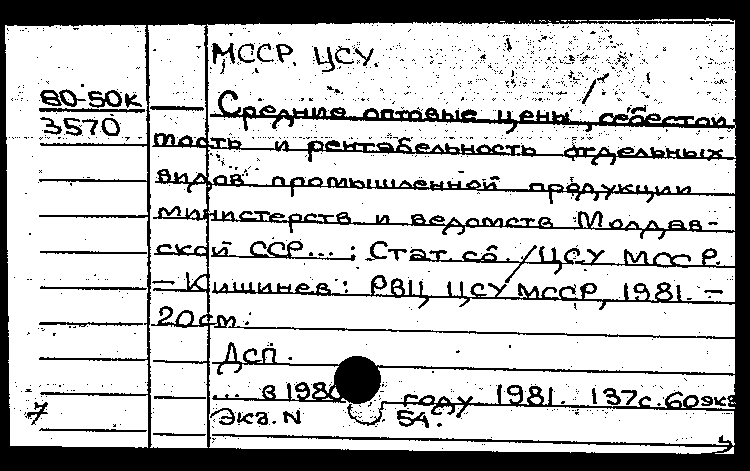 МССР. ЦСУ.
80-50к
3570
Средние оптовые цены, себестои-
мость и рентабельность отдельных
видов промышленной продукции
министерств и ведомств Молдав-
ской ССР... : Стат. сб. / ЦСУ МССР.
– Кишинев: РВЦ ЦСУ МССР, 1981. –
20см.
Дсп.
... в 1980 году 1981. 137с. 60экз
Экз. N 54.